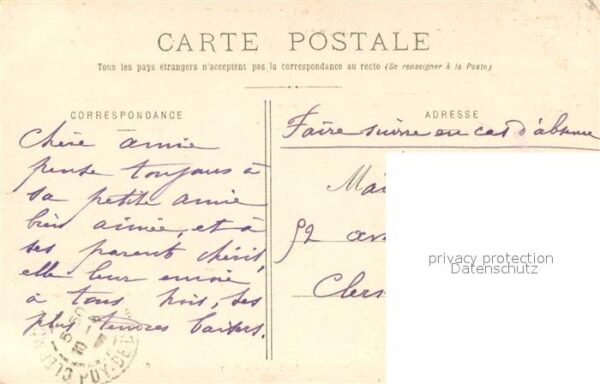 CARTE POSTALE
Tous les pays étrangers n'acceptent pas la correspondance au recto (Se renseigner à la Poste)
CORRESPONDANCE
Chère amie
pense toujours à
sa petite amie
bien aimée, et à
ses parents chéris,
elle leur envoie
à tous trois, ses
plus tendres baisers.
ADRESSE
Faire suivre en cas d'absence
92
Clerm
privacy protection
Datenschutz
PUY-DE-D